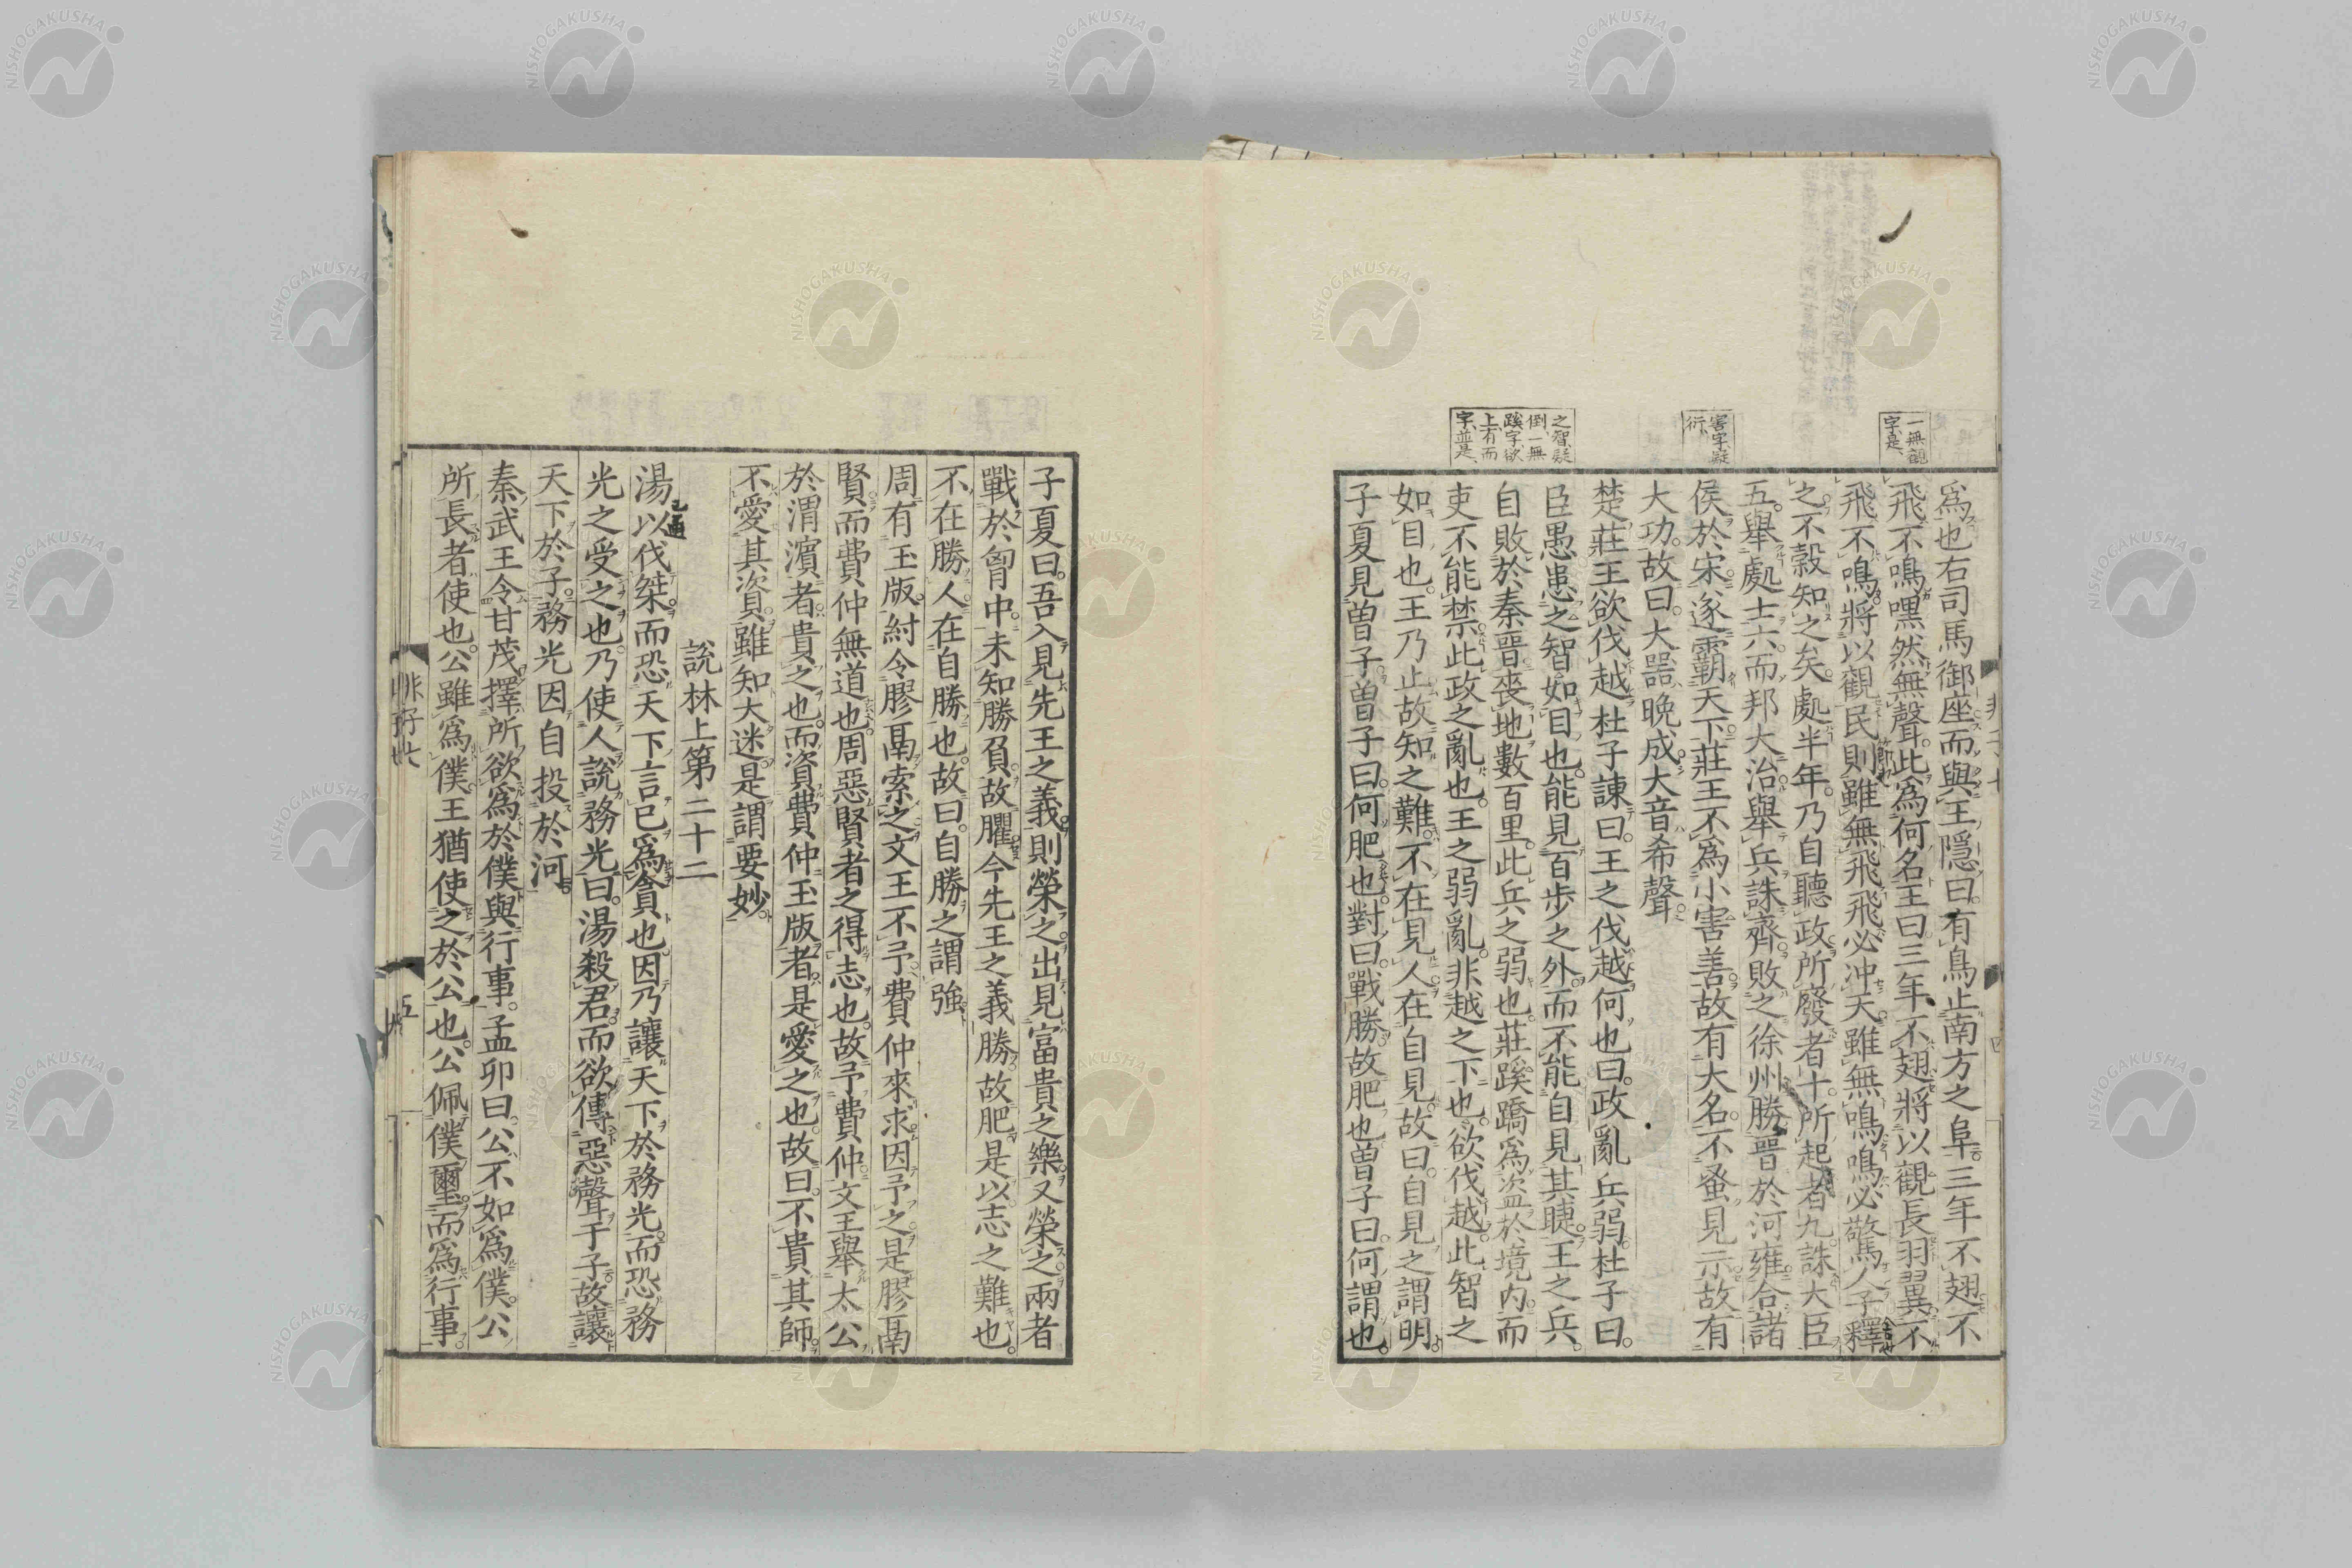 一無觀
字、是、
害字疑
衍、
之智、疑
倒、一無
蹊字、欲
上有而
字、並是、
爲也右司馬御座而與王隱曰。有鳥止南方之阜。三年不翅不
飛不鳴嘿然無聲。此爲何名王曰三年不翅將以觀長羽翼不
飛不鳴將以觀民則雖無飛飛必沖天。雖無鳴鳴必驚人子釋
之不穀知之矣。處半年。乃自聽政所廢者十。所起者九誅大臣
五。舉處士六。而邦大治舉兵誅齊敗之徐州勝晋於河雍合諸
侯於宋遂霸天下。莊王不爲小害善故有大名不蚤見示故有
大功。故曰。大器晚成大音希聲
楚莊王欲伐越杜子諫曰。王之伐越何也曰。政亂兵弱。杜子曰。
臣愚患之智如目也。能見百步之外。而不能自見其睫。王之兵。
自敗於秦晋喪地數百里。此兵之弱也。莊蹊蹻爲盜於境内而
吏不能禁。此政之亂也。王之弱亂。非越之下也。欲伐越。此智之
如目也。王乃止故知之難。不在見人在自見。故曰。自見之謂明。
子夏見曽子。曽子曰。何肥也對曰。戰勝。故肥也曽子曰。何謂也。
子夏曰。吾入見先王之義則榮之出見富貴之樂。又榮之兩者
戰於胷中。未知勝負。故臞今先王之義勝故肥是以志之難也。
不在勝人在自勝也。故曰。自勝之謂強
周有玉版。紂令膠鬲索之文王不予費仲來求因予之是膠鬲
賢而費仲無道也周惡賢者之得志也。故予費仲。文王舉太公
於渭濵者。貴之也。而資費仲玉版者。是愛之也。故曰。不貴其師。
不愛其資。雖知大迷。是謂要妙。
說林上第二十二
湯以伐桀。而恐天下言已爲貪也。因乃讓天下於務光。而恐務
光之受之也。乃使人說務光曰。湯殺君而欲傳惡聲于子故讓
天下於子。務光因自投於河。
秦武王令甘茂擇所欲爲於僕與行事。孟卯曰。公不如爲僕。公
所長者使也。公雖爲僕。王猶使之於公也。公佩僕璽而爲行事。